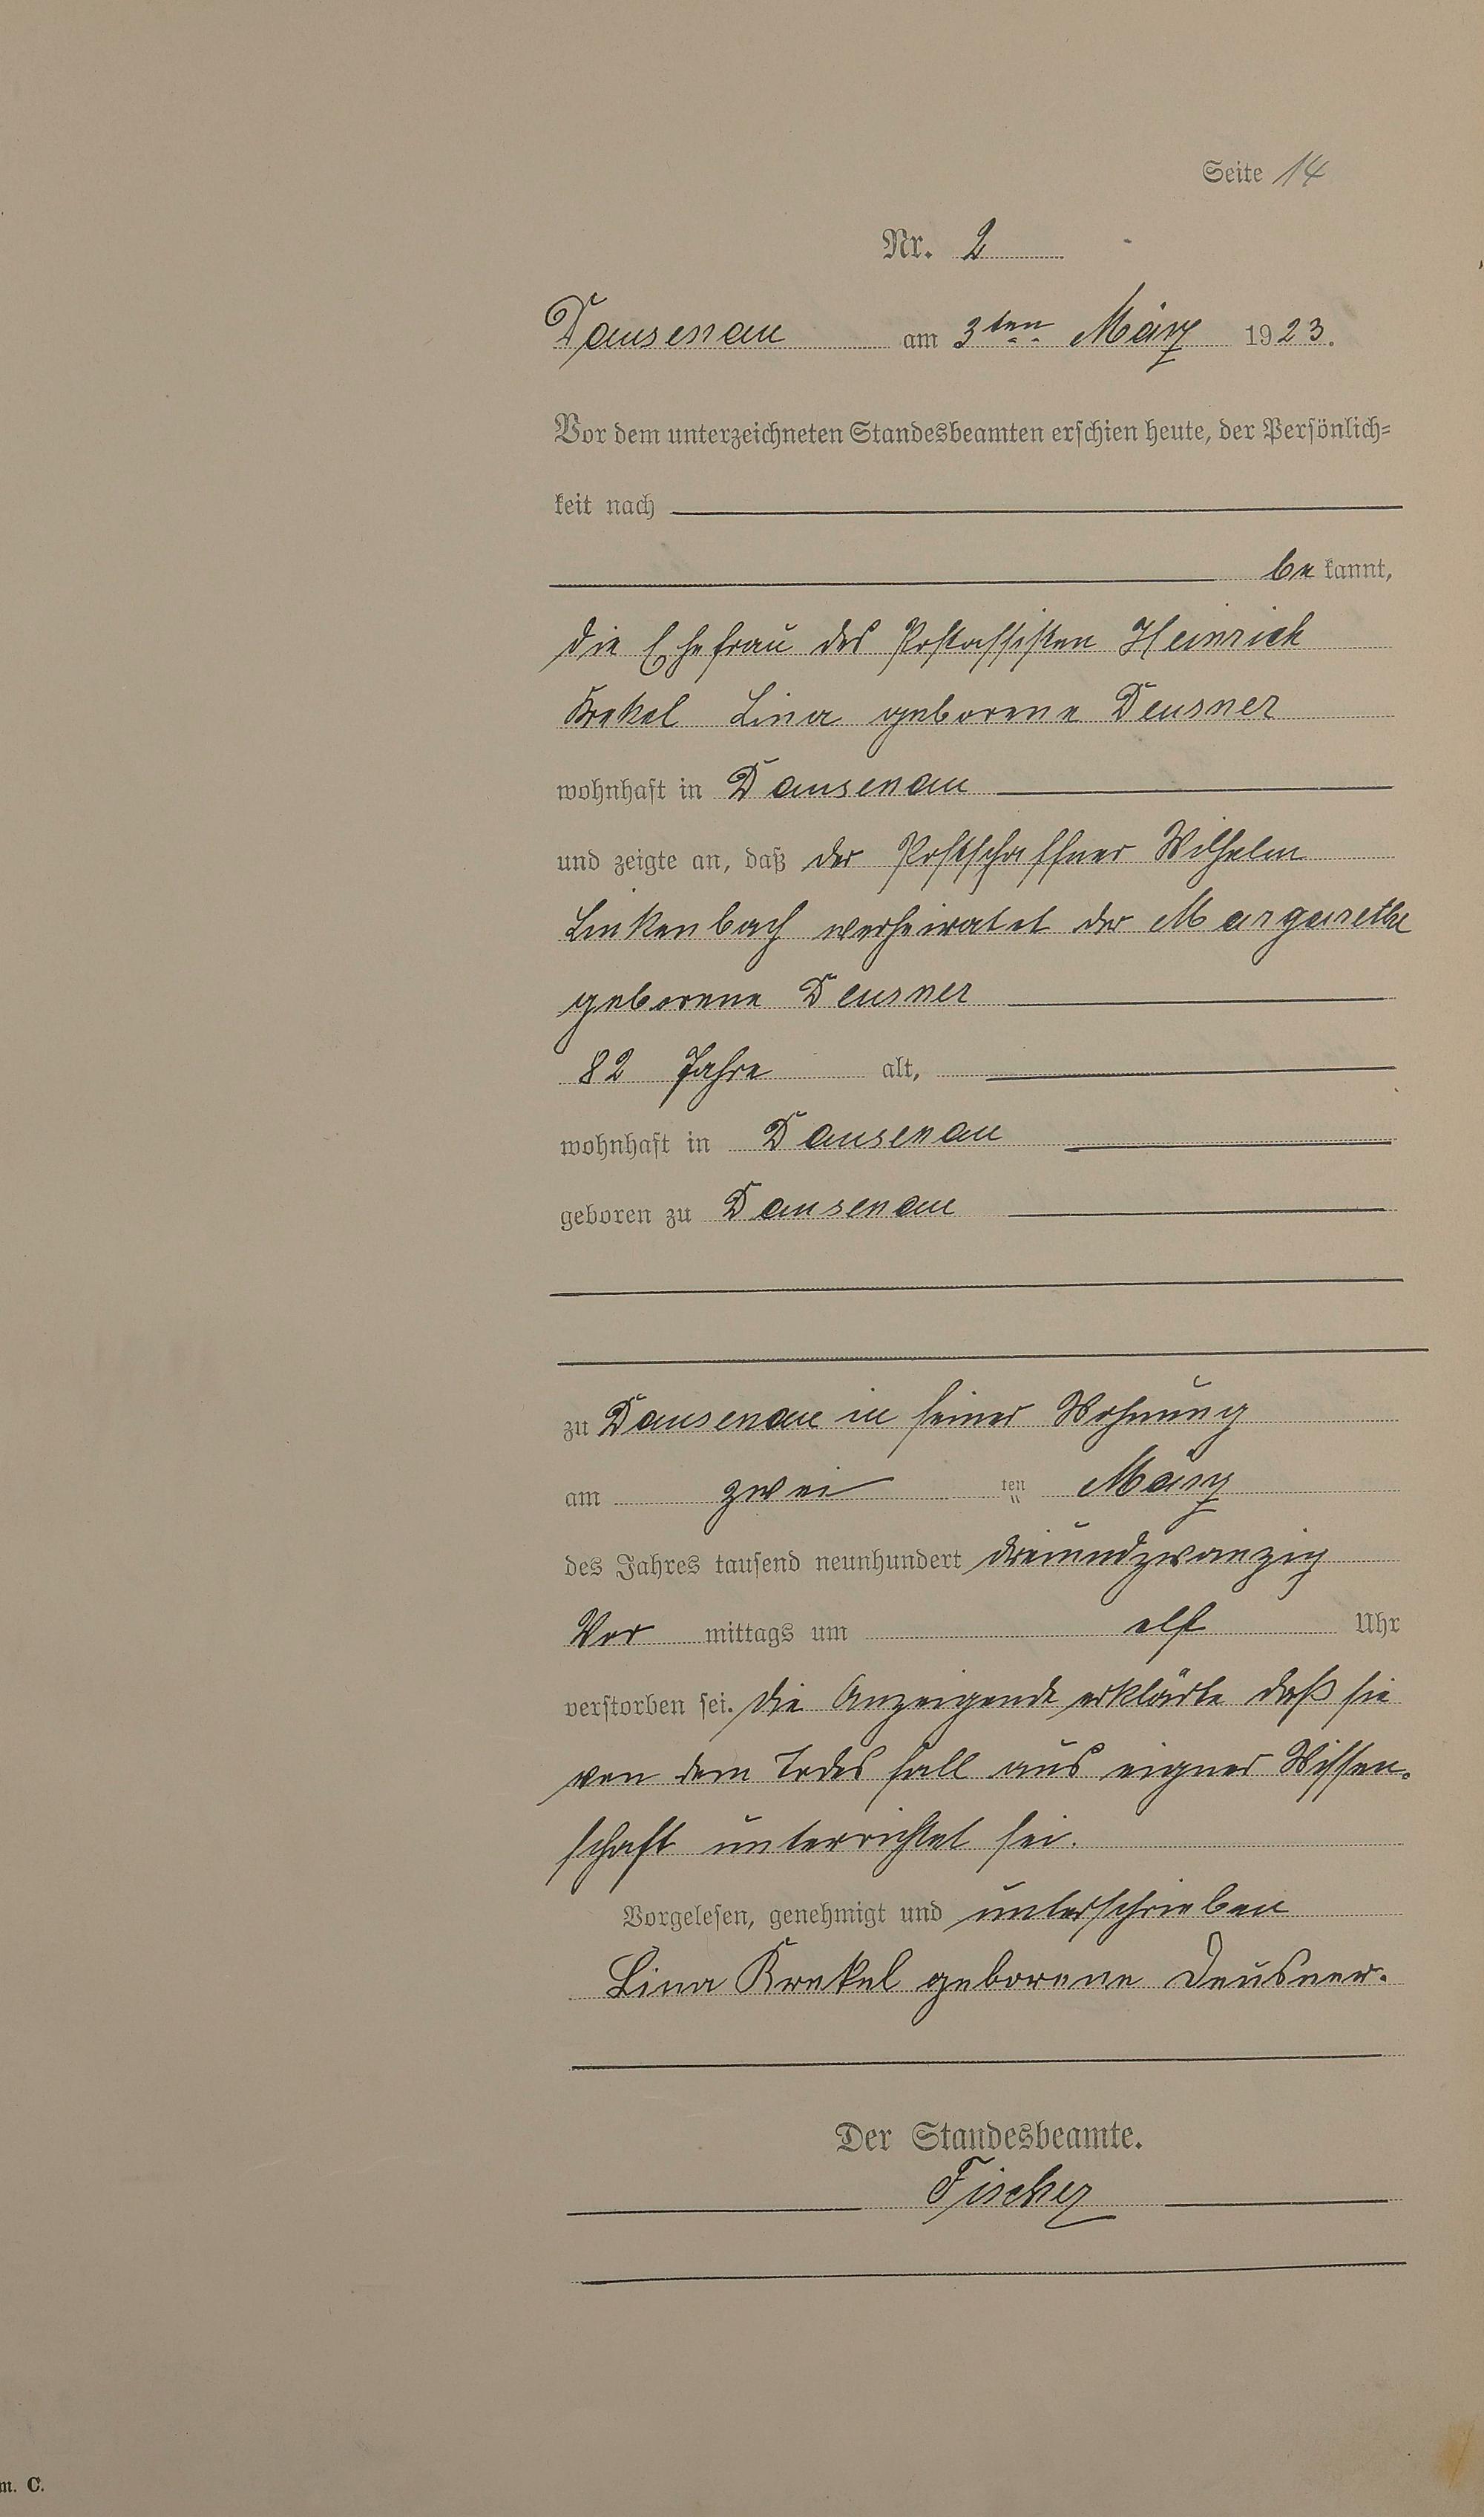 Seite 14
Nr. 2
Dausenau am 3ten März 1923.
Vor dem unterzeichneten Standesbeamten erschien heute, der Persönlich-
keit nach
be kannt,
die Ehefrau des Postassisten Heinrich
Krekel Lina geborene Deusner
wohnhaft in Dausenau
und zeigte an, daß der Postschaffner Wilhelm
Linkenbach verheiratet der Margarethe
geborene Deusner
82 Jahre alt,
wohnhaft in Dausenau
geboren zu Dausenau
zu Dausenau in seiner Wohnung
am zwei ten März
des Jahres tausend neunhundert dreiundzwanzig
Vor mittags um elf Uhr
verstorben sei. Die Anzeigende erklärte daß sie
von dem Todes fall aus eigner Wissen-
schaft unterrichtet sei.
Vorgelesen, genehmigt und unterschrieben
Lina Krekel geborene Deusner.
Der Standesbeamte.
Fischer
m. C.